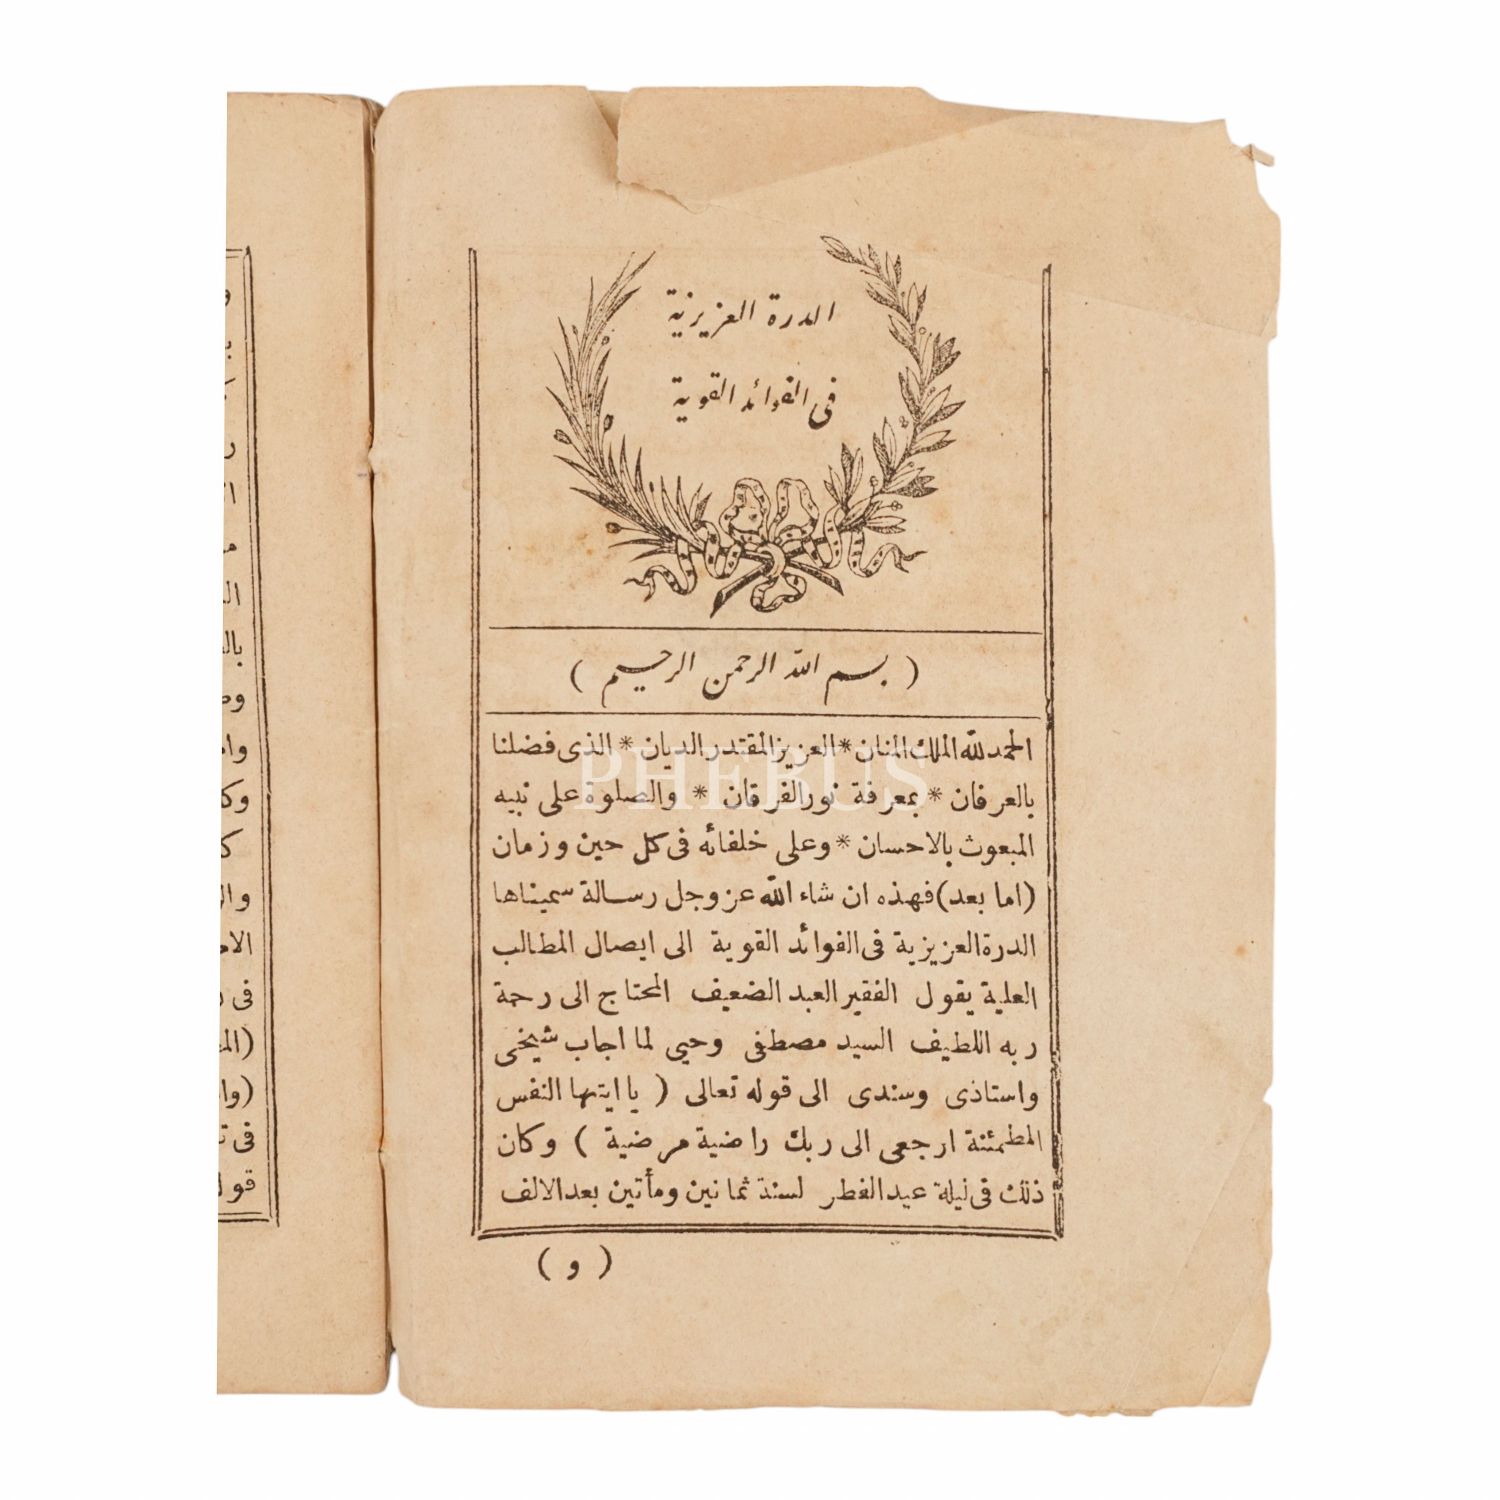 الدرة العزيزية
فى الفوائد القوية
( بسم الله الرحمن الرحيم )
الحمد لله الملك المنان * العزيز المقتدر الديان * الذى فضلنا
بالعرفان * بمعرفة نور الفرقان * والصلوة على نبيه
المبعوث بالاحسان * وعلى خلفائه فى كل حين وزمان
(اما بعد) فهذه ان شاء الله عز وجل رسالة سميناها
الدرة العزيزية فى الفوائد القوية الى ايصال المطالب
العلية يقول الفقير العبد الضعيف المحتاج الى رحمة
ربه اللطيف السيد مصطفى وحيى لما اجاب شيخى
واستاذى وسندى الى قوله تعالى ( يا ايتها النفس
المطمئنة ارجعى الى ربك راضية مرضية ) وكان
ذلك فى ليلة عيد الفطر لسنة ثمانين ومأتين بعد الالف
( و )
PHEBUS